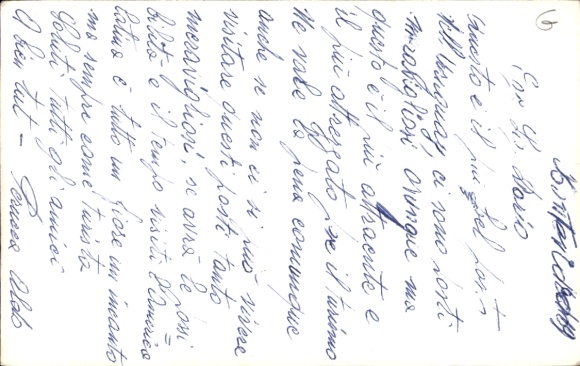 6
Cr. L. Dario
questo è il più bel posto
dell'Uruguay, ci sono posti
meravigliosi ovunque ma
questo è il più attraente e
il più attrezzato per il turismo
Ne vale la pena comunque
anche se non ci si può vivere
visitare questi posti tanto
meravigliosi, se avrà le possi=
bilità e il tempo visiti l'America
latina è tutto un fiore un incanto
ma sempre come turista
Saluti tutti gli amici
A bien tut -